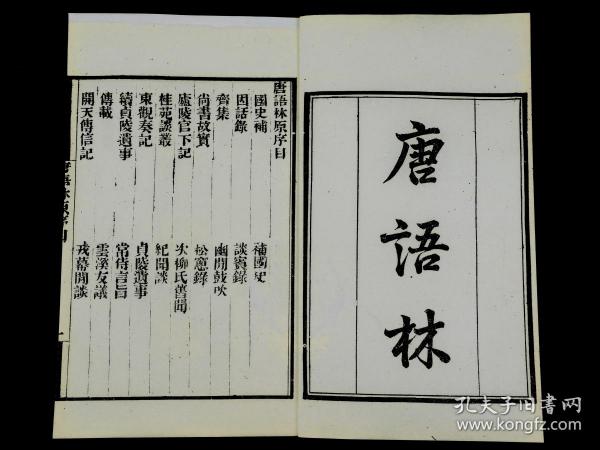 唐語林
唐語林原序目
國史補 補國史
因話錄 談賓錄
齊集 幽閒鼓吹
尚書故實 松窻錄
廬陵官下記 次柳氏舊聞
桂苑談叢 紀聞談
東觀奏記 貞陵遺事
續貞陵遺事 常侍言旨
傳載 雲溪友議
開天傳信記 戎幕閒談
孔夫子旧书网
www.kongfz.com